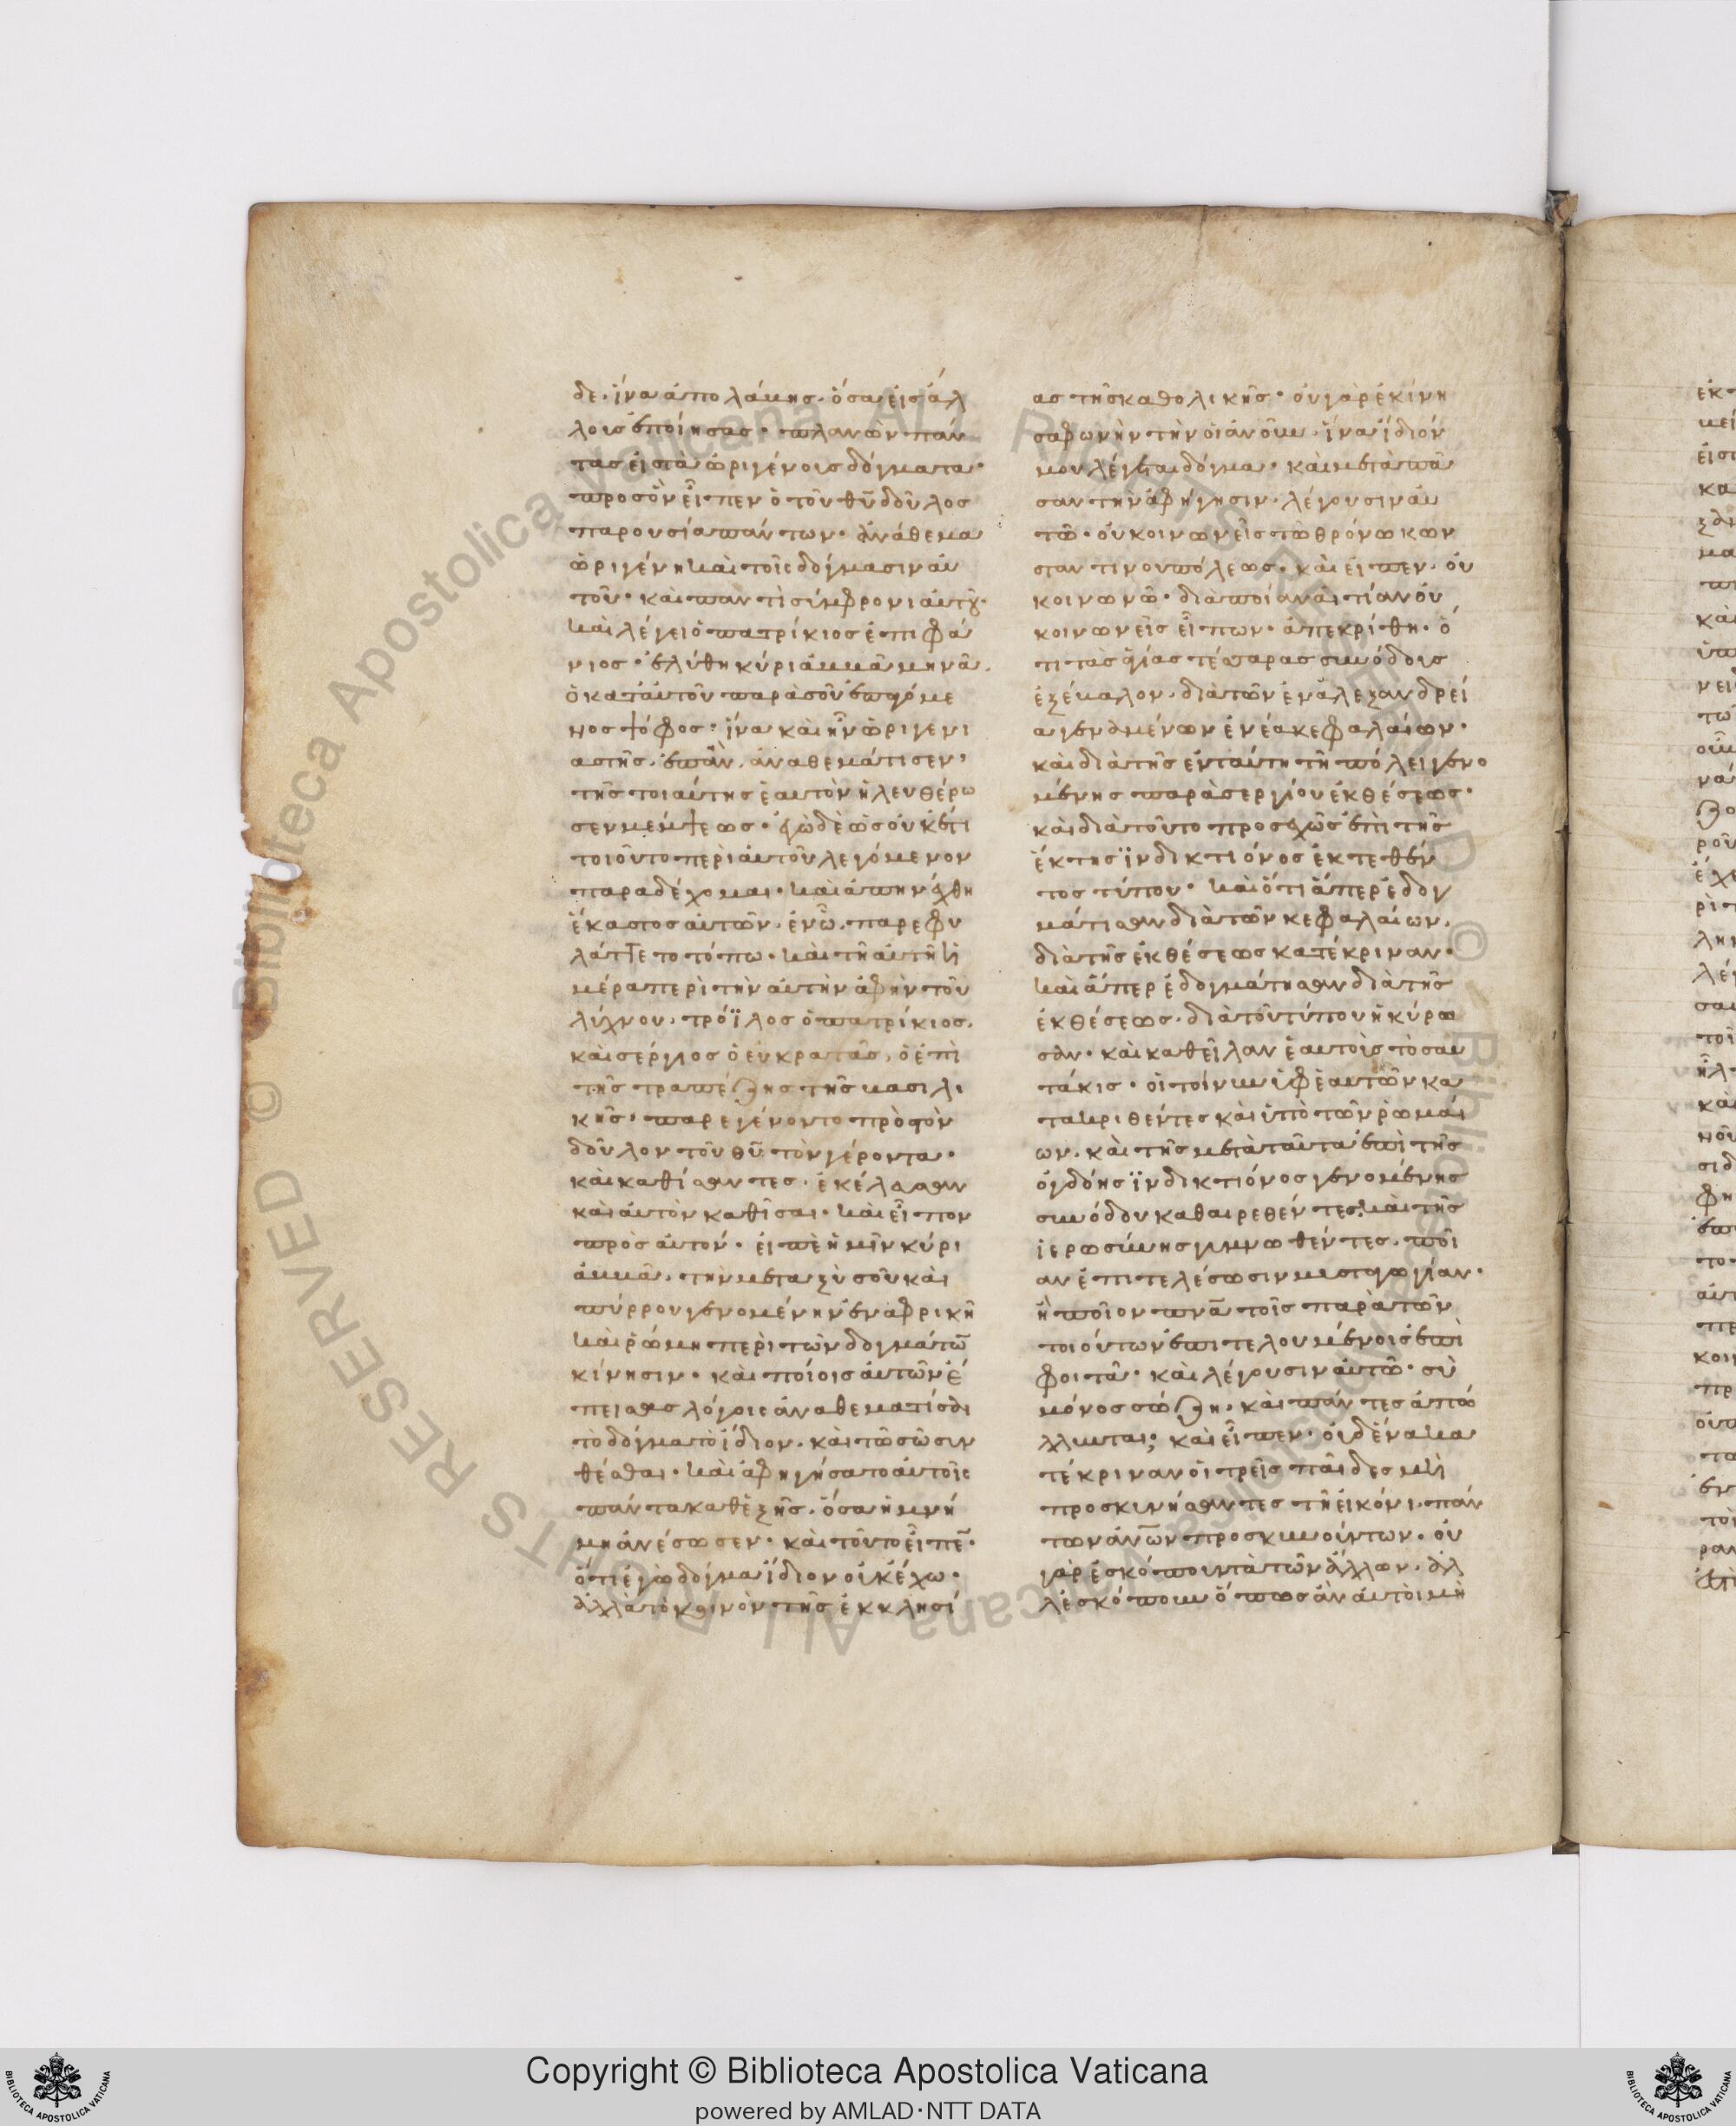 δε· ἵνα ἀπολάβης· ὅσα εἰς ἀλ
λους ἐποίησας· πλανῶν πάν
τας εἰς τὰ ὠριγένους δόγματα·
προς ὃν εἶπεν ὁ τοῦ θῦ δοῦλος
παρουσία πάντων· ἀνάθεμα
ὠριγένη καὶ τοῖς δόγμασιν αὐ
τοῦ· καὶ παντὶ σύμφρονι αὐτοῦ·
καὶ λέγει ὁ πατρίκιος ἐπιφά
νιος· ἐλύθη κύρι ἀββᾶ μηνᾶ·
ὁ κατ' αὐτοῦ παρὰ σοῦ ἐπαγόμε
νος ψόφος· ἵνα καὶ ἦν ὠριγενι
αστῆς· ἐπὰν ἀναθεμάτισεν·
τῆς τοιαύτης ἑαυτὸν ἠλευθέρω
σεν μέμψεως· ἐγὼ δὲ ὡς οὐκ ἔτι
τοιοῦτο περὶ αὐτοῦ λεγόμενον
παραδέχομαι· καὶ ἀπηνέχθη
ἕκαστος αὐτῶν· ἐν ὧ παρεφυ
λάττετο τόπω· καὶ τῆ αὐτῆ ἡ
μέρα περὶ τὴν αὐτὴν ἁφὴν τοῦ
λύχνου· τρόϊλος ὁ πατρίκιος·
καὶ σέργιος ὁ εὐκρατᾶς· ὁ ἐπὶ
τῆς τραπέζης τῆς βασιλι
κῆς· παρεγένοντο πρὸς τὸν
δοῦλον τοῦ θῦ τὸν γέροντα·
καὶ καθίσαντες· ἐκέλευσαν
καὶ αὐτὸν καθῖσαι· καὶ εἶπον
πρὸς αὐτον· εἰπὲ ἡμῖν κύρι
ἀββᾶ· τὴν μεταξὺ σοῦ καὶ
πύρρου γενομένην ἐν ἀφρικῆ
καὶ ῥώμη περὶ τῶν δογμάτω
κίνησιν· καὶ ποίοις αὐτῶν ἔ
πεισας λόγοις ἀναθεματίσαι
τὸ δόγμα τὸ ἴδιον· καὶ τῶ σῶ συν
θέσθαι· καὶ ἀφηγήσατο αὐτοῖς
πάντα καθεξῆς· ὅσα ἡ μνή
μη ἀνέσωσεν· καὶ τοῦτο εἶπε·
ὅτι ἐγὼ δόγμα ἴδιον οὐκ ἔχω·
ἀλλὰ τὸ κοινὸν τῆς ἐκκλησί
ας τῆς καθολικῆς· οὐ γὰρ ἐκίνη
σα φωνὴν τὴν οἱάνουν· ἵνα ἴδιόν
μου λέγεται δόγμα· καὶ μετὰ πᾶ
σαν τὴν ἀφήγησιν· λέγουσιν αὐ
τῶ· οὐ κοινωνεῖς τῶ θρόνω κων
σταντινουπόλεως· καὶ εἶπεν· οὐ
κοινωνῶ· διὰ ποίαν αἰτίαν οὐ
κοινωνεῖς εἶπων· ἀπεκρίθη· ὅ
τι τὰς ἁγίας τέσσαρας συνόδους
ἐξέβαλον· διὰ τῶν ἐν ἀλεξανδρεί
α γενομένων ἐνέα κεφαλαίων·
καὶ διὰ τῆς ἐν ταύτη τῆ πόλει γενο
μένης παρὰ σεργίου ἐκθέσεως·
καὶ διὰ τοῦ το προσεχῶς ἐπὶ τῆς
ἕκτης ϊνδικτιόνος ἐκτεθέν
τος τύπου· καὶ ὅτι ἅπερ ἐδογ
μάτισαν διὰ τῶν κεφαλαίων·
διὰ τῆς ἐκθέσεως κατέκριναν·
καὶ ἅπερ ἐδογμάτησαν διὰ τῆς
ἐκθέσεως· διὰ τοῦ τύπου ἠκύρω
σαν· καὶ καθεῖλαν ἑαυτοὺς τοσαυ
τάκις· οἱ τοίνυν ὑφ' ἑαυτῶν κα
τακριθέντες καὶ ὑπὸ τῶν ῥωμαί
ων· καὶ τῆς μετὰ ταῦτα ἐπὶ τῆς
ὀγδόης ϊνδικτιόνος γενομένης
συνόδου καθαιρεθέντες· καὶ τῆς
ἱερωσύνης γυμνωθέντες· ποῖ
αν ἐπιτελέσωσιν μυσταγωγίαν·
ἢ ποῖον πνᾶ τοῖς παρὰ τῶν
τοιούτων ἐπιτελουμένοις ἐπι
φοιτᾶ· καὶ λέγουσιν αὐτῶ· σὺ
μόνος σώζη· καὶ πάντες ἀπώ
λλυνται; καὶ εἶπεν· οὐδένα κα
τέκριναν οἱ τρεῖς παῖδες μὴ
προσκυνήσαντες τῆ εἰκόνι· πάν
των ἀνῶν προσκυνούντων· οὐ
γὰρ ἐσκόπουν τὰ τῶν ἄλλων· ἀλ
λ' ἐσκόπουν ὅπως ἂν αὐτοὶ μὴ
Copyright © Biblioteca Apostolica Vaticana
powered by AMLAD·NTT DATA